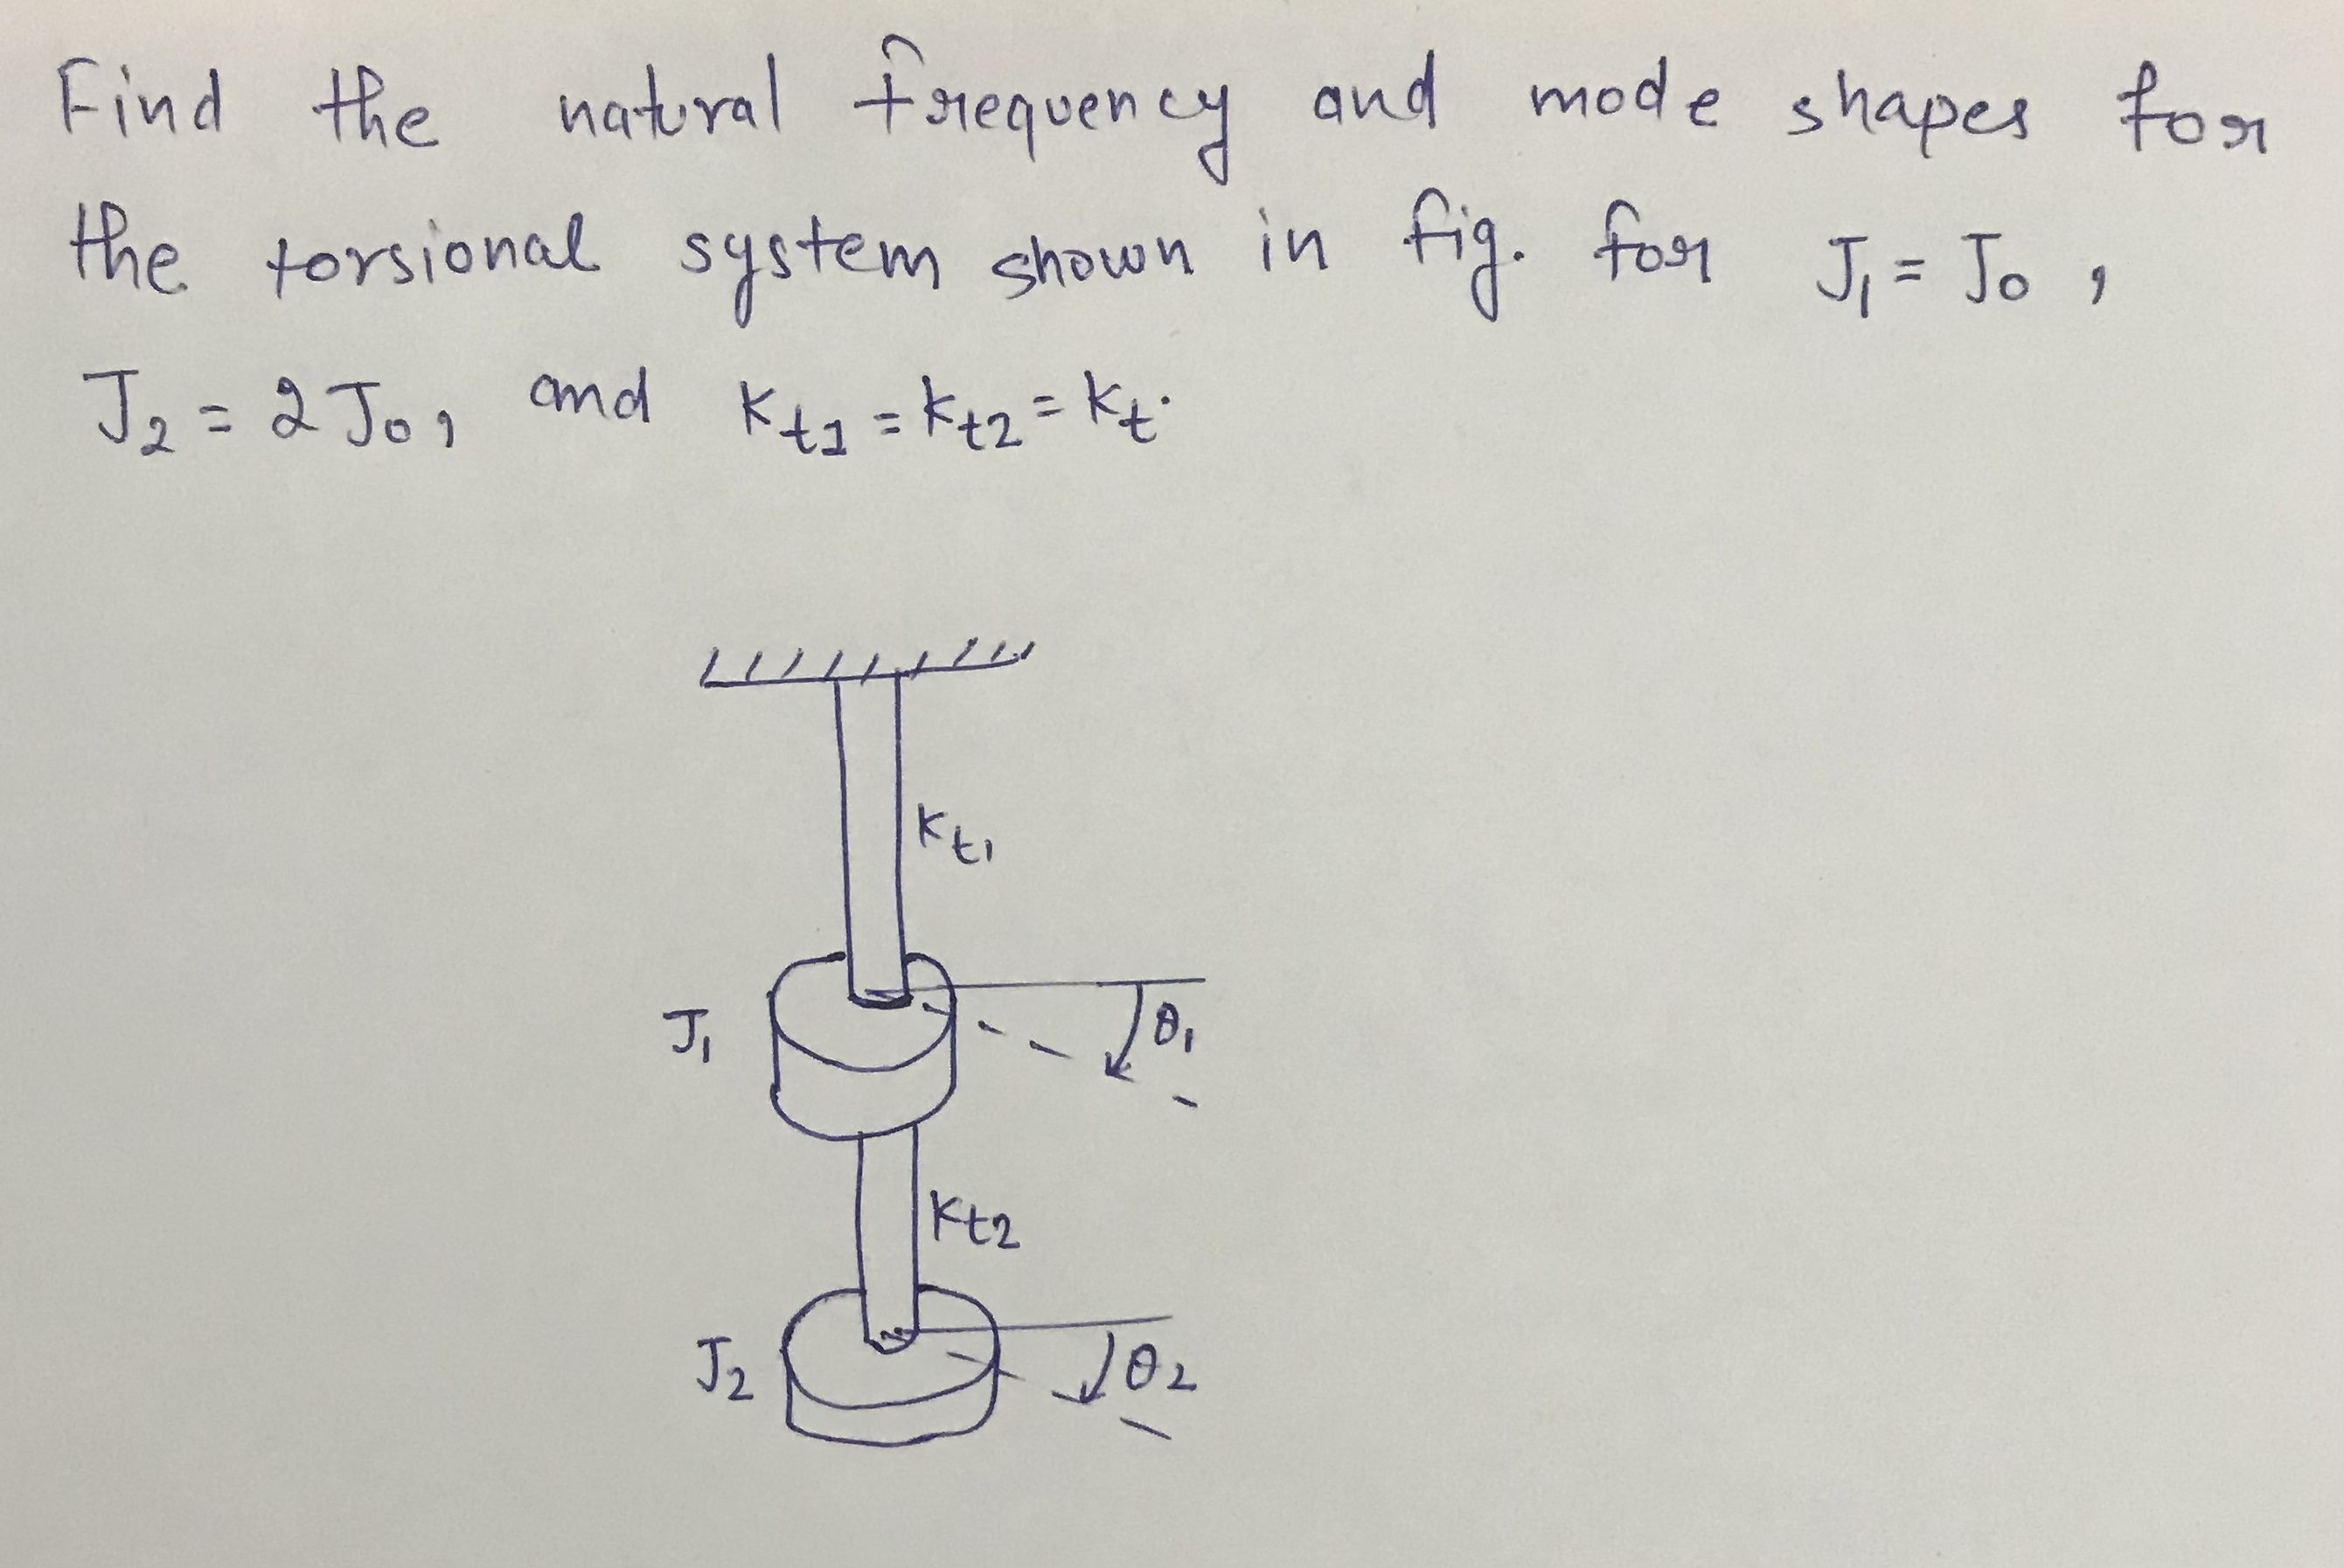 Find the natural frequency and mode shapes for
the torsional system shown in fig. for J₁ = J₀ ,
J₂ = 2J₀, and Kt1 = Kt2 = Kt.
Kt1
J₁
θ₁
Kt2
J₂
θ₂